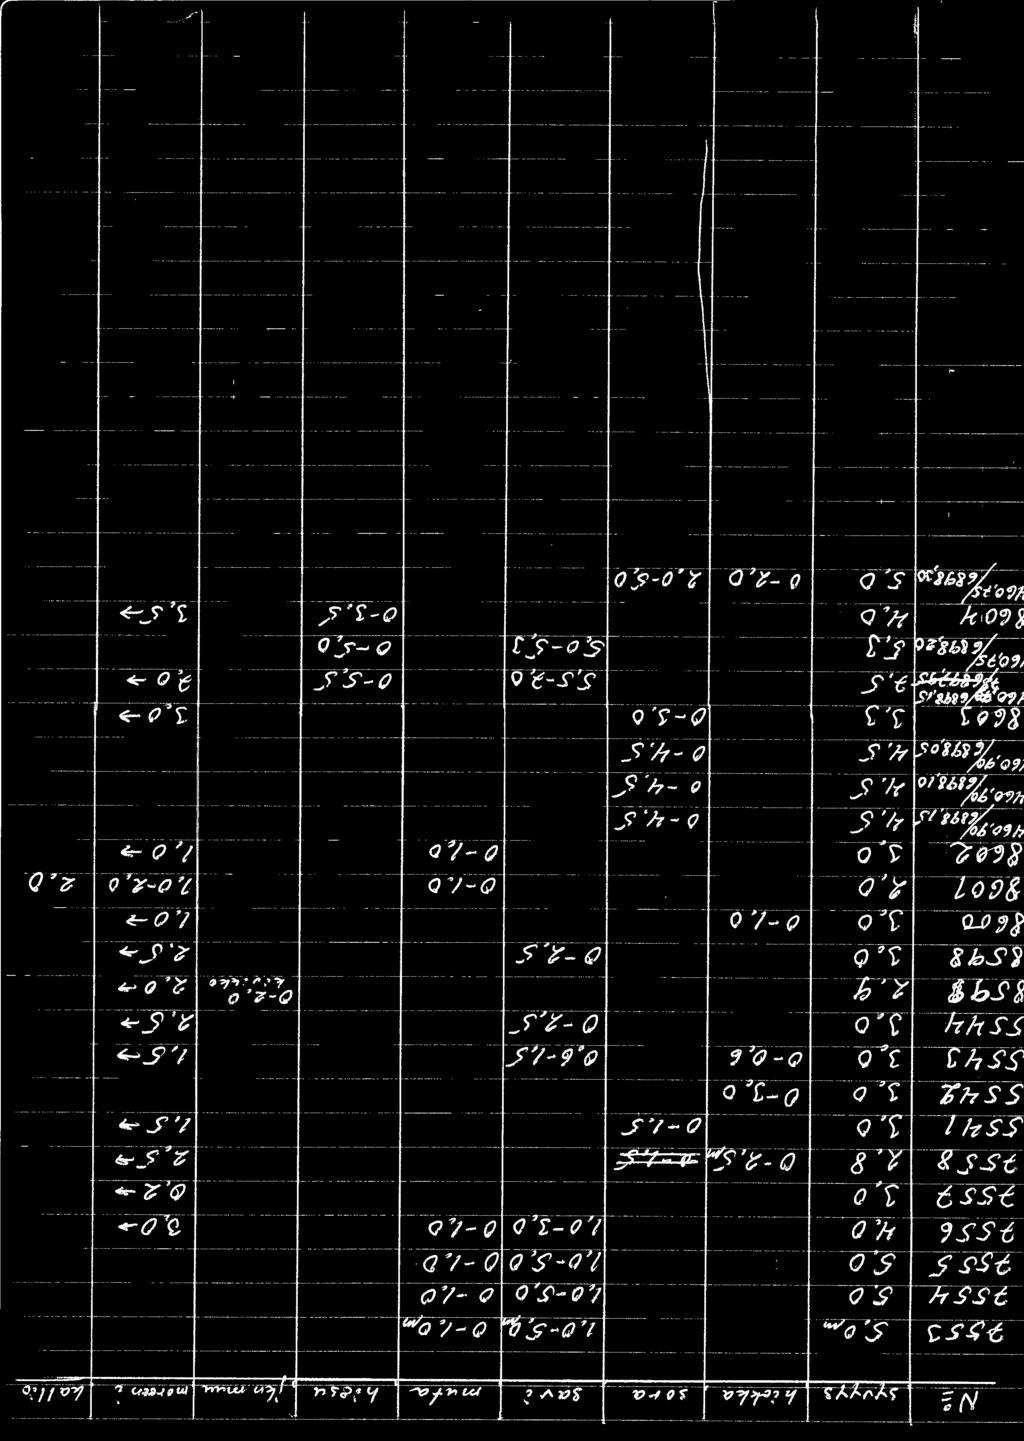 No syvyys hiekka sora savi muta hiesu jkn muu moreeni kallio
7553 5,0m 1,0-5,0m 0-1,0m
7554 5,0 1,0-5,0 0-1,0
7555 5,0 1,0-5,0 0-1,0
7556 4,0 1,0-3,0 0-1,0 3,0→
7557 3,0 0,2→
7558 2,8 0-2,5m 0-1,5 2,5→
5541 3,0 0-1,5 1,5→
5542 3,0 0-3,0
5543 3,0 0-0,6 0,6-1,5 1,5→
5544 3,0 0-2,5 2,5→
2,9 0-2,0 kivikko 2,0→
8598 3,0 0-2,5 2,5→
8600 3,0 0-1,0 1,0→
8601 2,0 0-1,0 1,0-2,0 2,0
8602 3,0 0-1,0 1,0→
460,90/6898,15 4,5 0-4,5
460,90/6898,10 4,5 0-4,5
460,90/6898,05 4,5 0-4,5
8603 3,3 0-3,0 3,0→
6898,15 7,5 5,5-7,0 0-5,5 7,0→
460,75/6898,20 5,3 5,0-5,3 0-5,0
8604 4,0 0-3,5 3,5→
460,75/6898,30 5,0 0-2,0 2,0-5,0